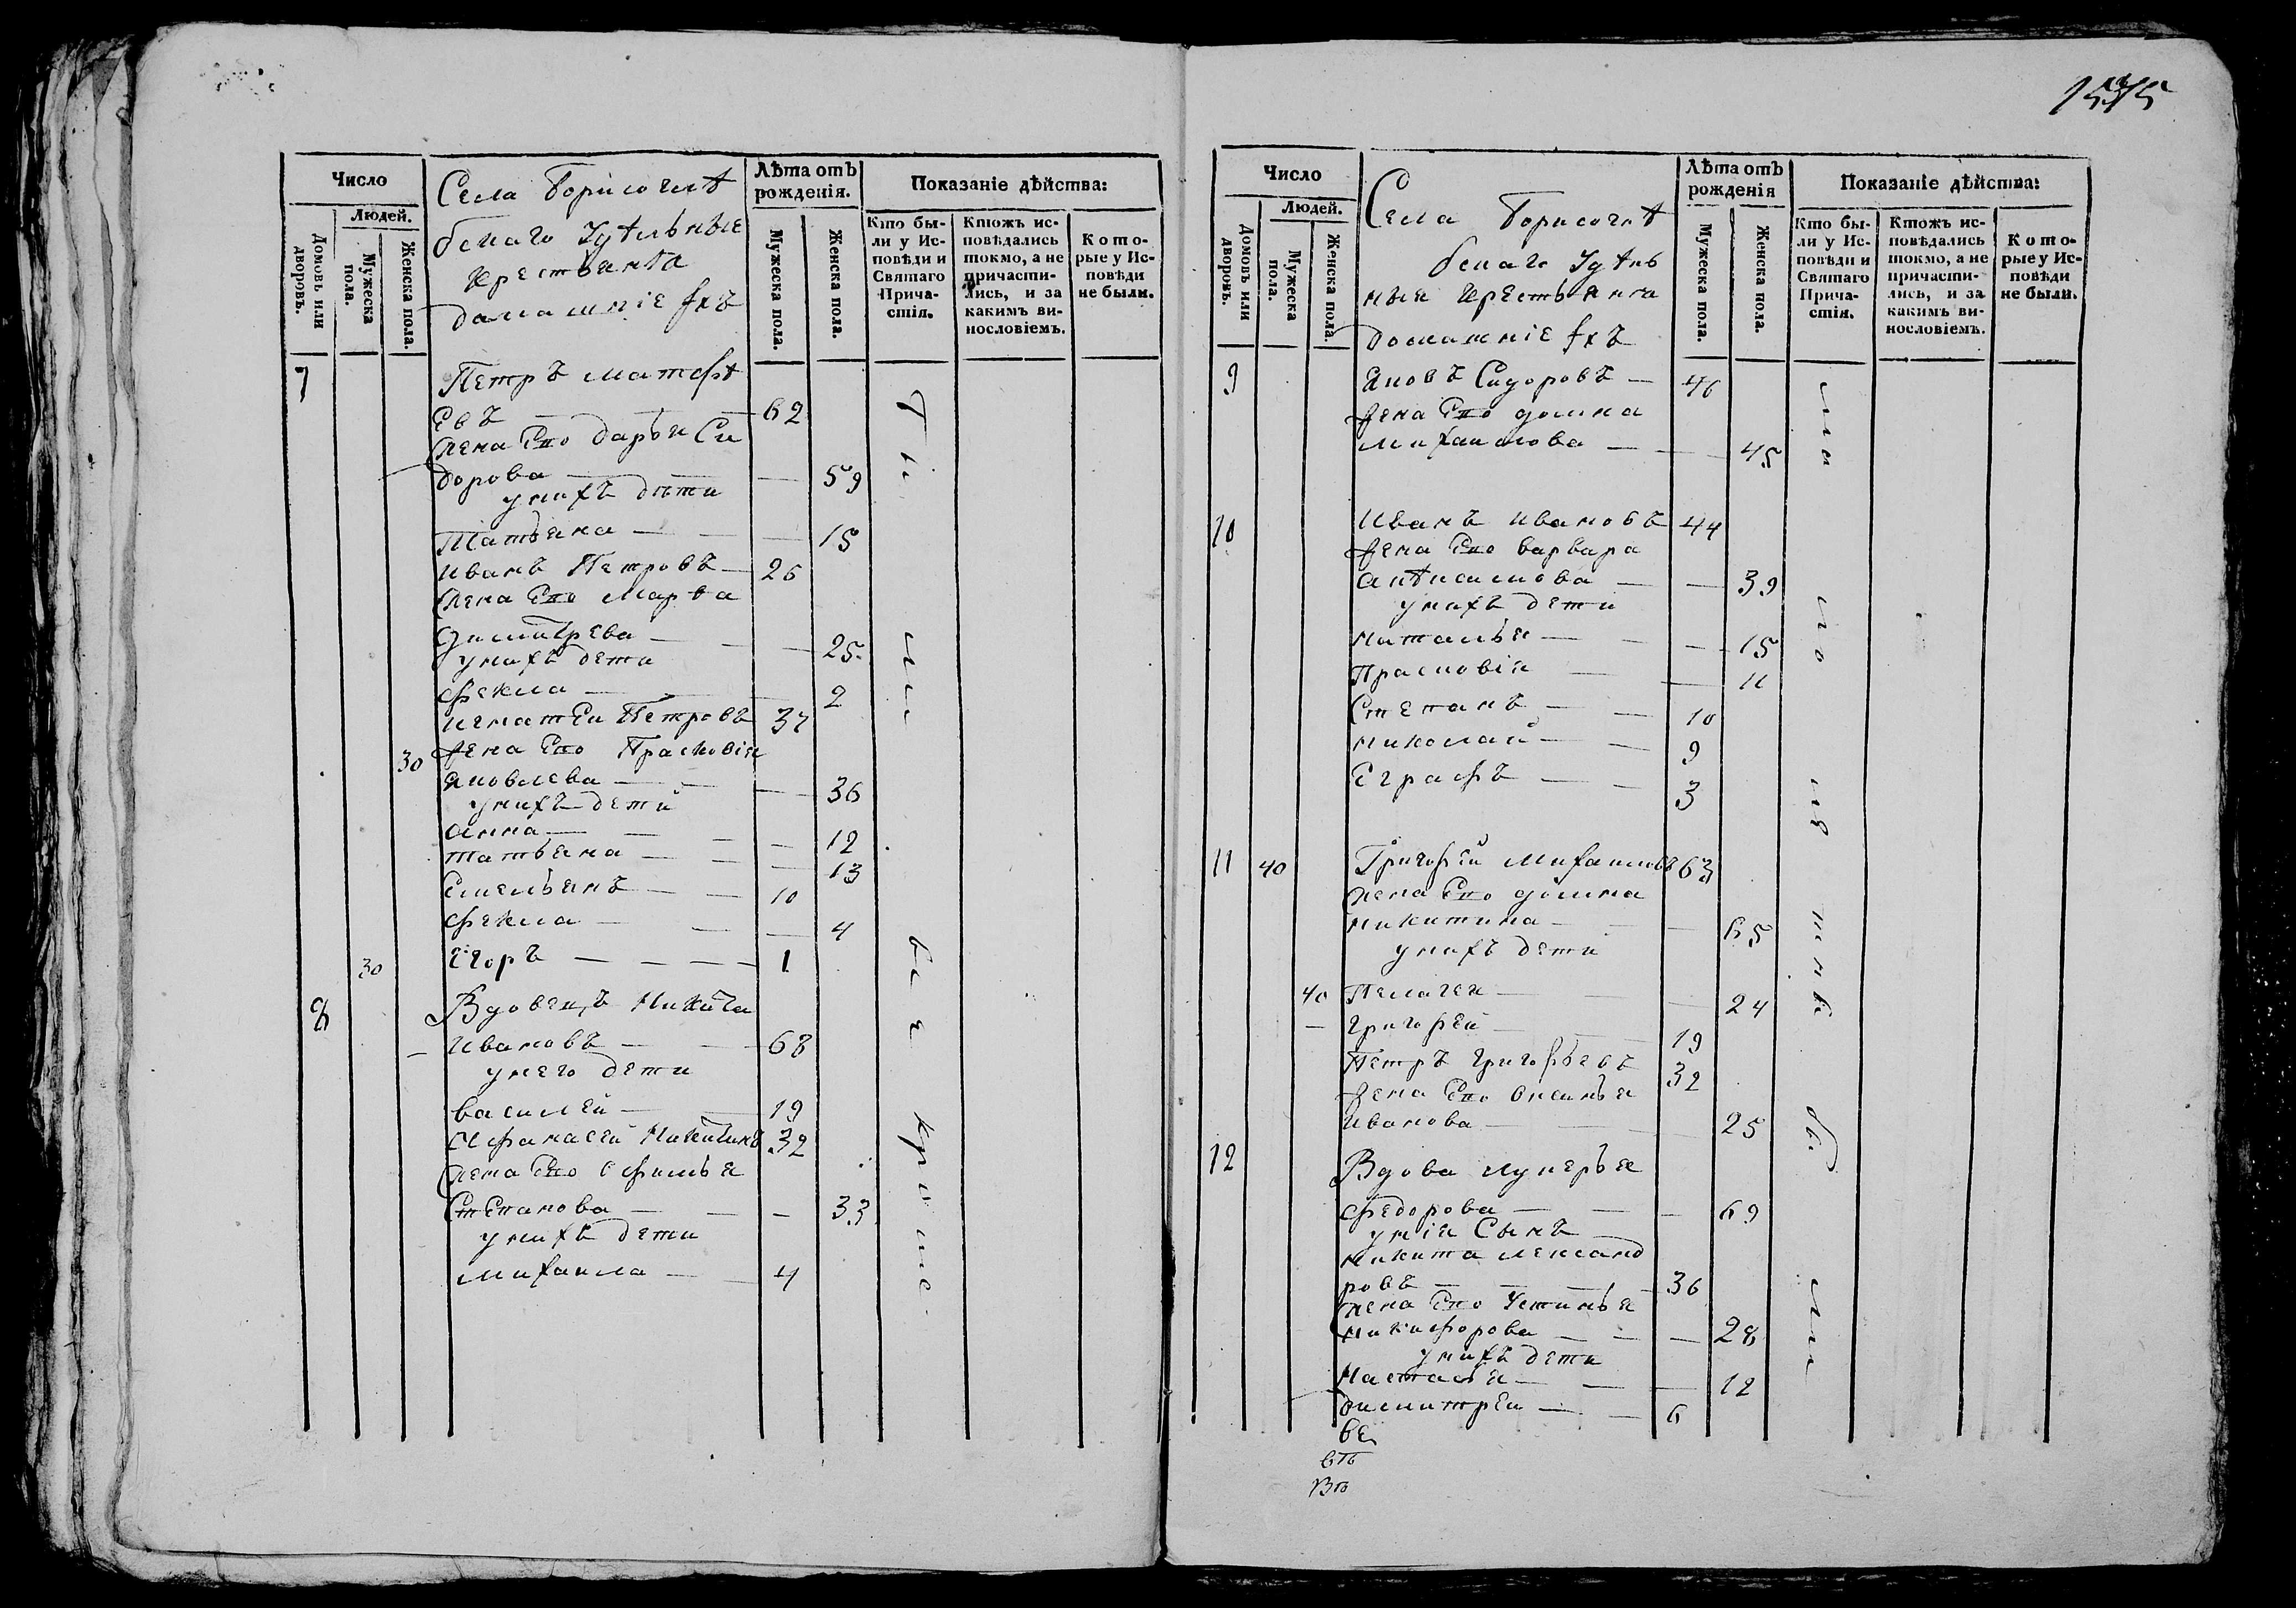 Число
Людей.
Домовъ или дворовъ.
Мужеска пола.
Женска пола.
Села Борисоглѣ
бскаго Удѣльные
крестьянѣ
домашніе ихъ
Лѣта отъ рожденія.
Мужеска пола.
Женска пола.
Показаніе дѣйства:
Кто бы-
ли у Ис-
повѣди и
Святаго
Прича-
стія.
Ктожъ ис-
повѣдались
токмо, а не
причасти-
лись, и за
какимъ ви-
нословіемъ.
Кото-
рые у Ис-
повѣди
не были.
7 Петръ Матфѣ
евъ — 62
жена Его Дарья Си
дорова — 59
у нихъ дѣти
Татьяна — 15
Иванъ Петровъ — 26
жена Его Марѳа
Димитрева — 25
у нихъ дети
Фекла — 2
Игнатей Петровъ 37
30 жена Его Прасковія
Яковлева — 36
у нихъ дети
Анна — 12
Татьяна — 13
Емельянъ — 10
Фекла — 4
30 Егоръ — 1
8 Вдовецъ Никита
Ивановъ — 68
у него дети
Василей — 19
Афанасей Никитинъ 32
жена Его Ефимья
Степанова — 33
у нихъ дети
Михаила — 4
1515
Число
Людей.
Домовъ или дворовъ.
Мужеска пола.
Женска пола.
Села Борисоглѣ
бскаго Удѣль
ные крестьянѣ
домашніе ихъ
Лѣта отъ рожденія
Мужеска пола.
Женска пола.
Показаніе дѣйства:
Кто бы-
ли у Ис-
повѣди и
Святаго
Прича-
стія.
Ктожъ ис-
повѣдались
токмо, а не
причасти-
лись, и за
какимъ ви-
нословіемъ.
Кото-
рые у Ис-
повѣди
не были.
9 Яковъ Сидоровъ — 46
жена Его Домна
Михаилова — 45
10 Иванъ Ивановъ 44
жена Его Варвара
— 39
у нихъ дети
Наталья — 15
Прасковія — 11
Степанъ — 10
Николай — 9
Еграфъ — 3
11 40 Григорей Михаиловъ 63
жена Его Домна
Никитина — 65
у нихъ дети
40 Пелагея — 24
Григорей — 19
Петръ Григорьевъ 32
жена Его Оксинья
Иванова — 25
12 Вдова Лукерья
Федорова — 69
у нія Сынъ
Никита Лександ
ровъ — 36
жена Его Устинья
Никифорова — 28
у нихъ дети
Настасья — 12
Димитрей — 6